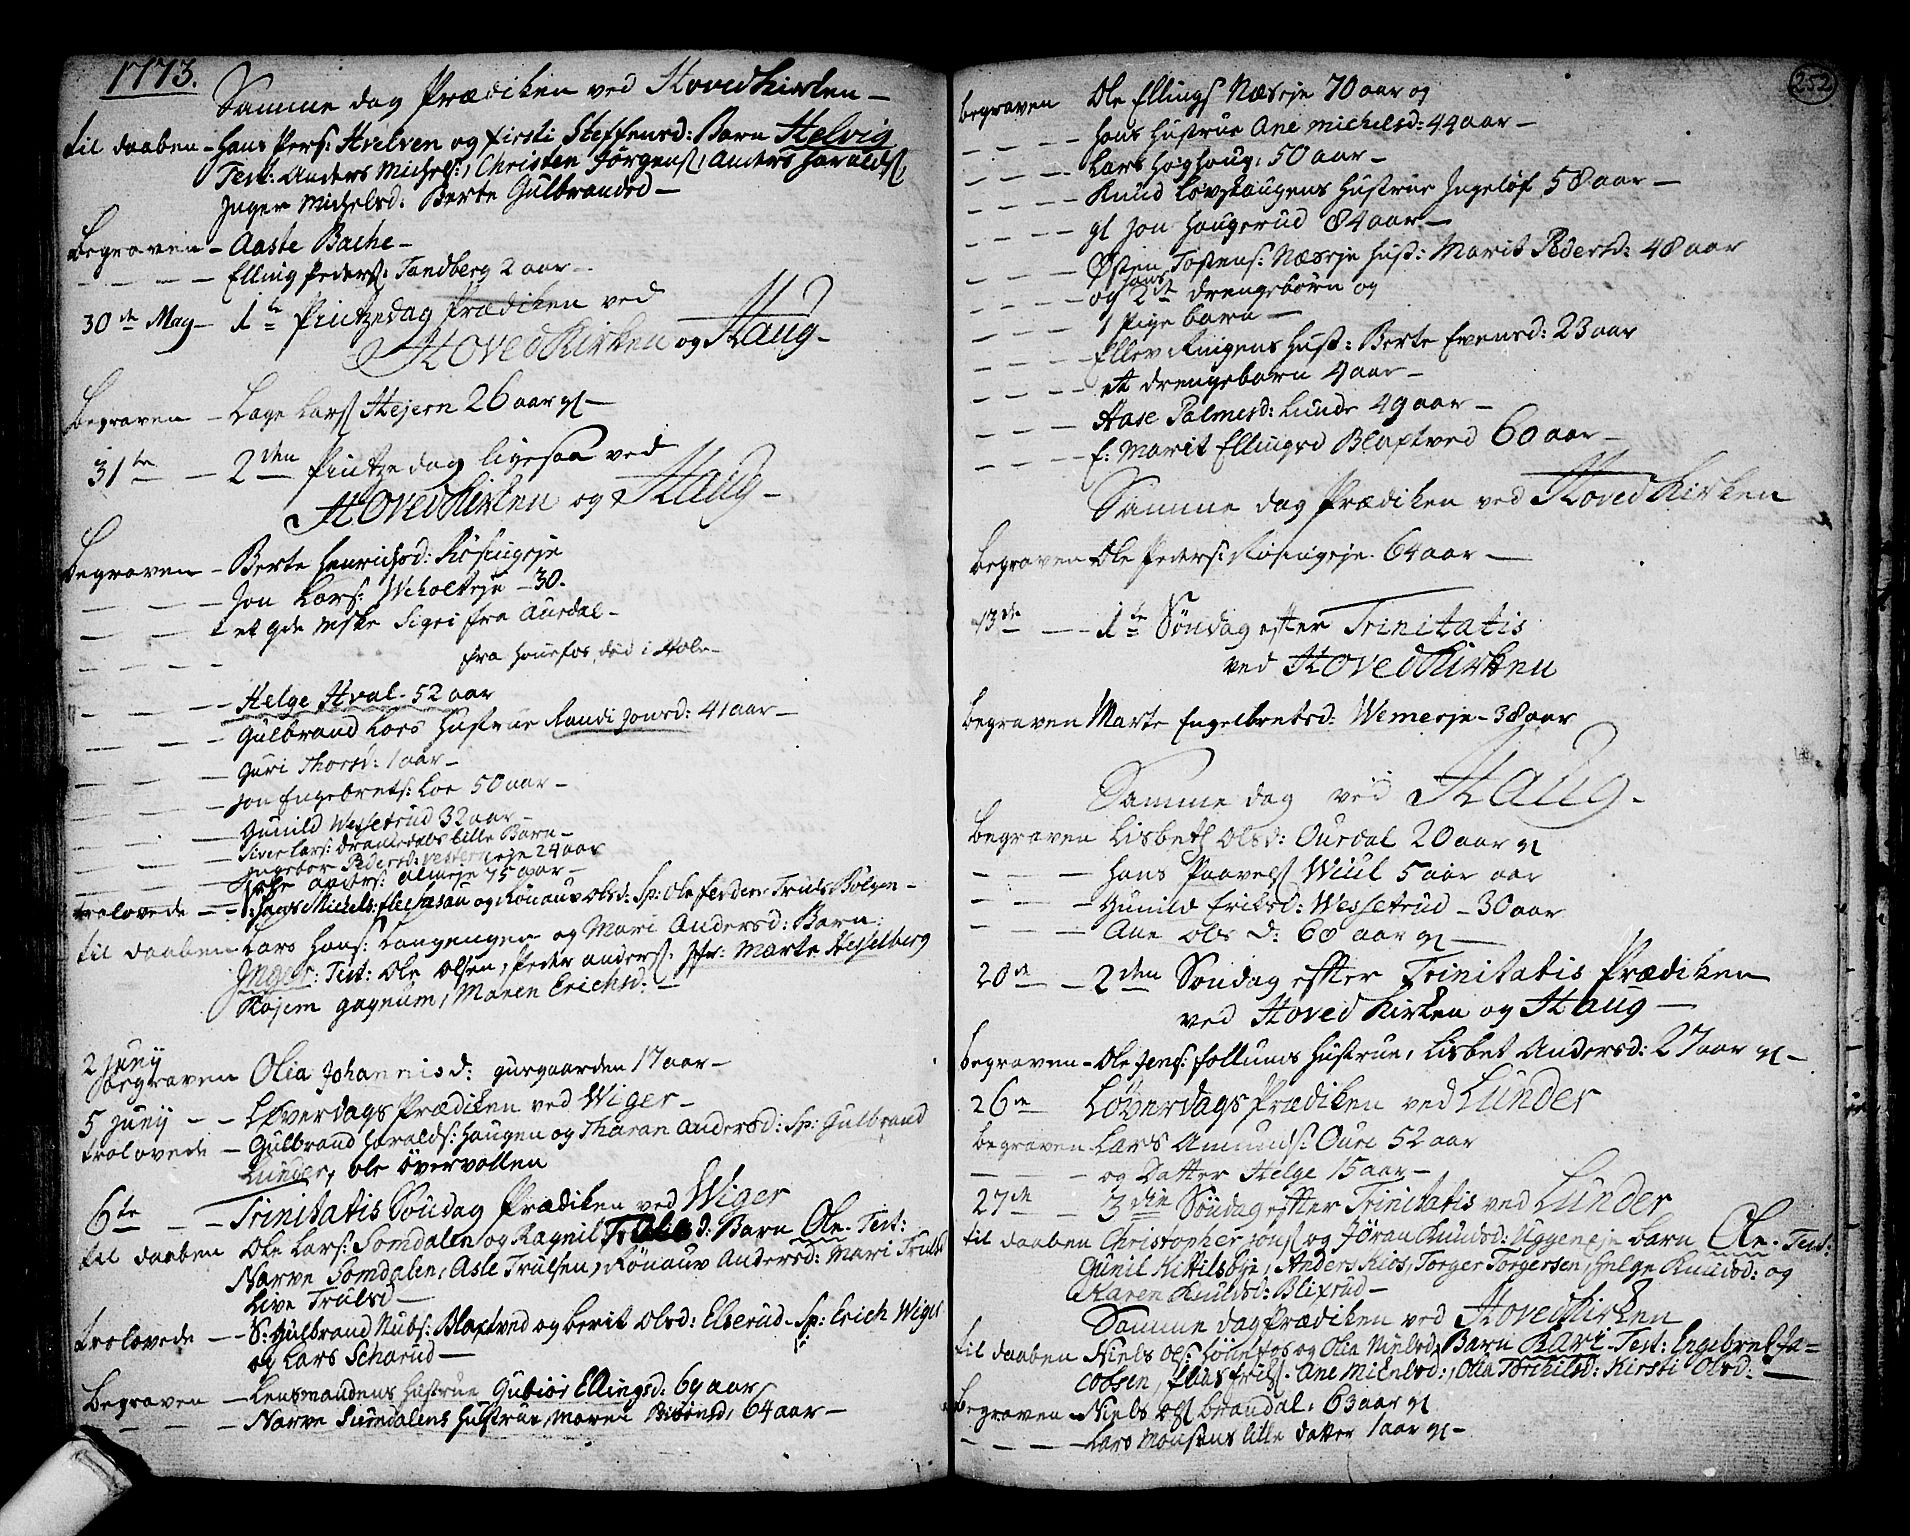 1773.
Samme dag Prædiken ved Hovedkirken –
til daaben – Hans Pers: Hvelven og Kirsti Steffensd: Barn Helvig
Test: Anders Michels:, Christen Jørgens:, Anders Haralds:,
Inger Michelsd: Berte Gulbrandsd –
Begraven – Aaste Bache –
– – – – Elling Peders: Tandberg 2 aar –
30te May – 1te Pintzedag Prædiken ved
Hoved Kirken og Haug –
Begraven – Lage Lars: Hejern 26 aar gl –
31te – – 2den Pintzedag ligesaa ved
Hoved Kirken og Haug –
Begraven – Berte Henrichsd: Røsingeje
– – – – Jon Lars: Weholteje – 30.
– – – – et Qde Mske Sigri fra Aurdal –
– – – – fra Hönefos, död i Hole –
– – – – Helge Hval – 52 aar
– – – – Gulbrand Loes Hustrue Randi Jonsd: 41 aar –
– – – – Guri Thorsd: 1 aar –
– – – – Jon Engebrets: Loe 50 aar –
– – – – Gunild Wessetrud 32 aar –
– – – – Siver Lars: Dramsdals lille Barn –
– – – – Ingebor Pedersd: Vesterneje 24 aar
– – – – anders: Almeje 75 aar –
trolovede – – Hans Michels: og Rönauv Olsd: Sp: Ole Truls Bölgen –
til daaben Lars Hans: Langengen og Mari Andersd: Barn
Inger. Test: Ole Olsen, Peder Anders: Jfr: Marte Hesselberg
Kojem gagnum, Maren Erichsd: –
2 Junij
begraven Olia Johannisd: gurgaarden 17 aar –
5 Junij – – Løverdags Prædiken ved Wiger –
trolovede – Gulbrand Haralds: Haugen og Tharan Andersd: Sp: Gulbrand
Lunder, Ole Övervollen
6te – – Trinitatis Søndag Prædiken ved Wiger
til daaben Ole Lars: Somdalen og Ragnil d: Barn Ole. Test:
Narve Somdalen, Asle Trulsen, Rönauv Andersd: Mari Trulsd
Live Trulsd –
trolovede – S: Gulbrand Nubs: Blaxtved og Berit Olsd: Elserud – Sp: Erich Wiger
og Lars Scharud –
Begraven – Lensmandens Hustrue, Gubiör Ellingsd: 69 aar
– – – – Narve Somdalens Hustrue, Maren 64 aar –
252
begraven Ole Ellings: Næseje 70 aar og
– – – – Hans Hustrue Ane Michelsd: 44 aar –
– – – – Lars Høghoug, 50 aar –
– – – – Knud Lövhaugens Hustrue Ingeløf 58 aar –
– – – – gl Jon Haugerud 84 aar –
– – – – Østen Tostens: Næseje Hust: Marit Pedersd: 48 aar
– – – – og hans 2de drengebörn og
– – – – 1 Pige barn –
– – – – Ellev Ringens Hust: Berte Evensd: 23 aar
– – – – et drengebarn 4 aar –
– – – – Aase Palmesd: Lunde 49 aar –
– – – – f: Marit Ellingsd Blaxtved 60 aar –
Samme dag Prædiken ved Hoved Kirken
Begraven Ole Peders: Rösingeje 64 aar –
13de – – 1te Söndag efter Trinitatis
ved Hoved Kirken
begraven Marte Engelbretsd: Wemeeje – 38 aar
Samme dag ved Haug –
begraven Lisbeth Olsd: Ourdal 20 aar gl
– – – Hans Paavels: Wiul 5 aar aar
– – – Gunild Eriksd: Wessetrud – 30 aar
– – – Ane Olsd: 60 aar gl –
20de – 2den Søndag efter Trinitatis Prædiken
ved Hoved Kirken og Haug –
begraven – Ole Jens: Follums Hustrue, Lisbet Andersd: 27 aar gl –
26de Løverdags Prædiken ved Lunder
begraven Lars Amunds: Ouri 52 aar
– – – og Datter Helge 15 aar –
27de – 3die Søndag efter Trinitatis ved Lunder
til daaben Christopher Jons: og Jöran Knudsd: Uggeneje barn Ole – Test:
Gunil Kittilsbye, Anders Kios, Torger Torgersen, Helge Knudsd: og
Karen Knudsd: Blixrud –
Samme dag Prædiken ved Hoved Kirken
til daaben Niels Ols: Hönefos og Olia Nielsd: Barn Kari – Test: Engebret Ja=
cobsen, Ane Michelsd:, Olia Torchilsd: Kirsti Olsd: –
Begraven – Niels Ols: Brandal. 63 aar gl
– – – – Lars Monsens lille datter 1 aar gl –